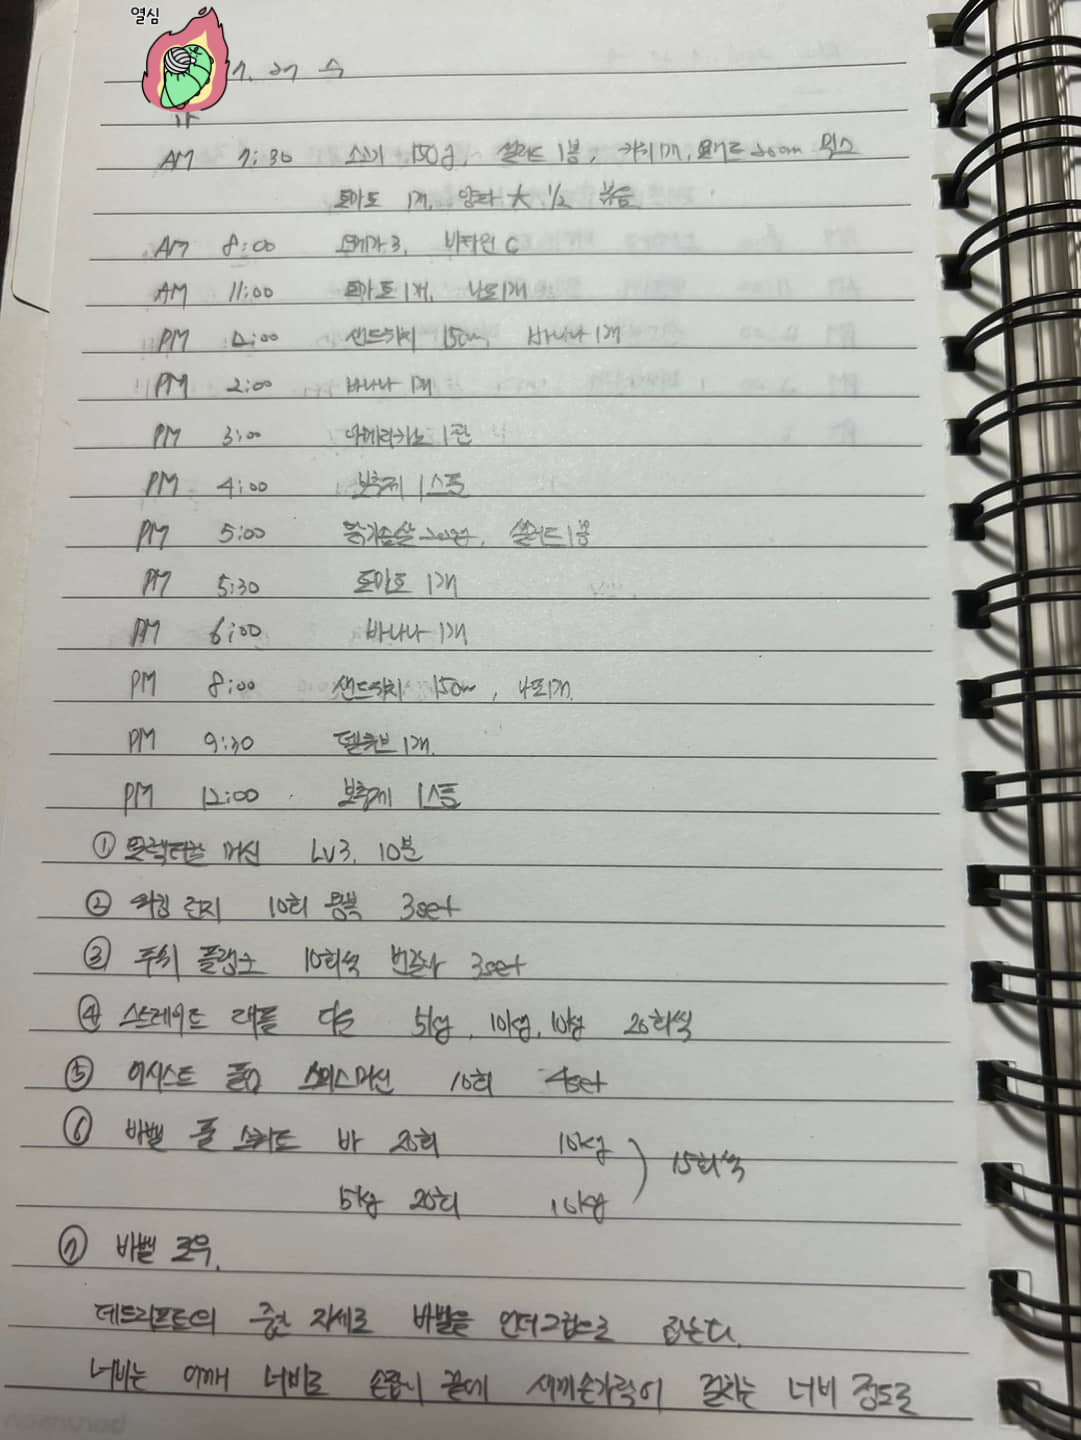 열심
7. 27 수
AM 7:30 소고기 150g, 샐러드 1봉, 키위 1개, 요거트 200ml 믹스
토마토 1개, 양파 大 1/2 볶음
AM 8:00 오메가3, 비타민 C
AM 11:00 토마토 1개, 낫또 1개
PM 12:00 샌드위치 15cm, 바나나 1개
PM 2:00 바나나 1개
PM 3:00 아메리카노 1잔
PM 4:00 보충제 1스푼
PM 5:00 닭가슴살 200g, 샐러드 1봉
PM 5:30 토마토 1개
PM 6:00 바나나 1개
PM 8:00 샌드위치 15cm, 낫또 1개
PM 9:30 1개
PM 12:00 보충제 1스푼
① 머신 Lv3, 10분
② 워킹 런지 10회 왕복 3set
③ 푸쉬 플랭크 10회씩 번갈아 3set
④ 스트레이트 래풀 다운 5kg, 10kg, 10kg 20회씩
⑤ 어시스트 풀업 스미스머신 10회 4set
⑥ 바벨 풀 스쿼트 바 20회 10kg ) 15회씩
5kg 20회 10kg
⑦ 바벨 로우.
데드리프트의 중간 자세로 바벨을 언더그립으로 잡는다.
너비는 어깨 너비로 손톱이 끝에 새끼손가락이 걸치는 너비 정도로